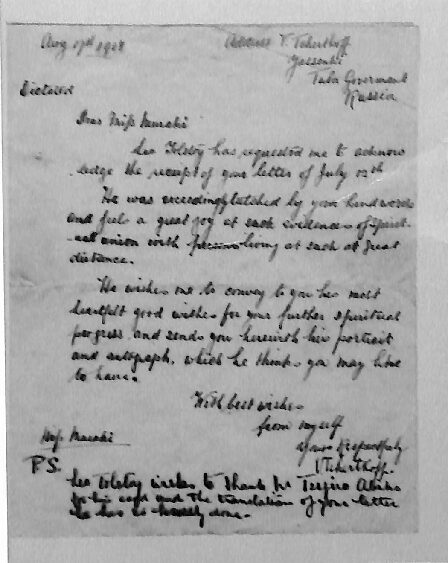 Aug 17th 1908
Address V. Tchertkoff
Yassenki
Tula Goverment
Russia
Dictated
Dear Miss Muraki
Leo Tolstoy has requested me to acknow
ledge the receipt of your letter of July 12th
He was exceedingly touched by your kind words
and feels a great joy at such evidences of spirit-
-ual union with persons living at such at great
distance.
He wishes me to convey to you his most
heartfelt good wishes for your further spiritual
progress, and sends you herewith his portrait
and autograph, which he thinks you may like
to have.
With best wishes
from myself
Yours Respectfuly
V Tchertkoff.
Miss Muraki
P.S.
Leo Tolstoy wishes to thank Mr
for his card and the translation of your letter
he has so done.